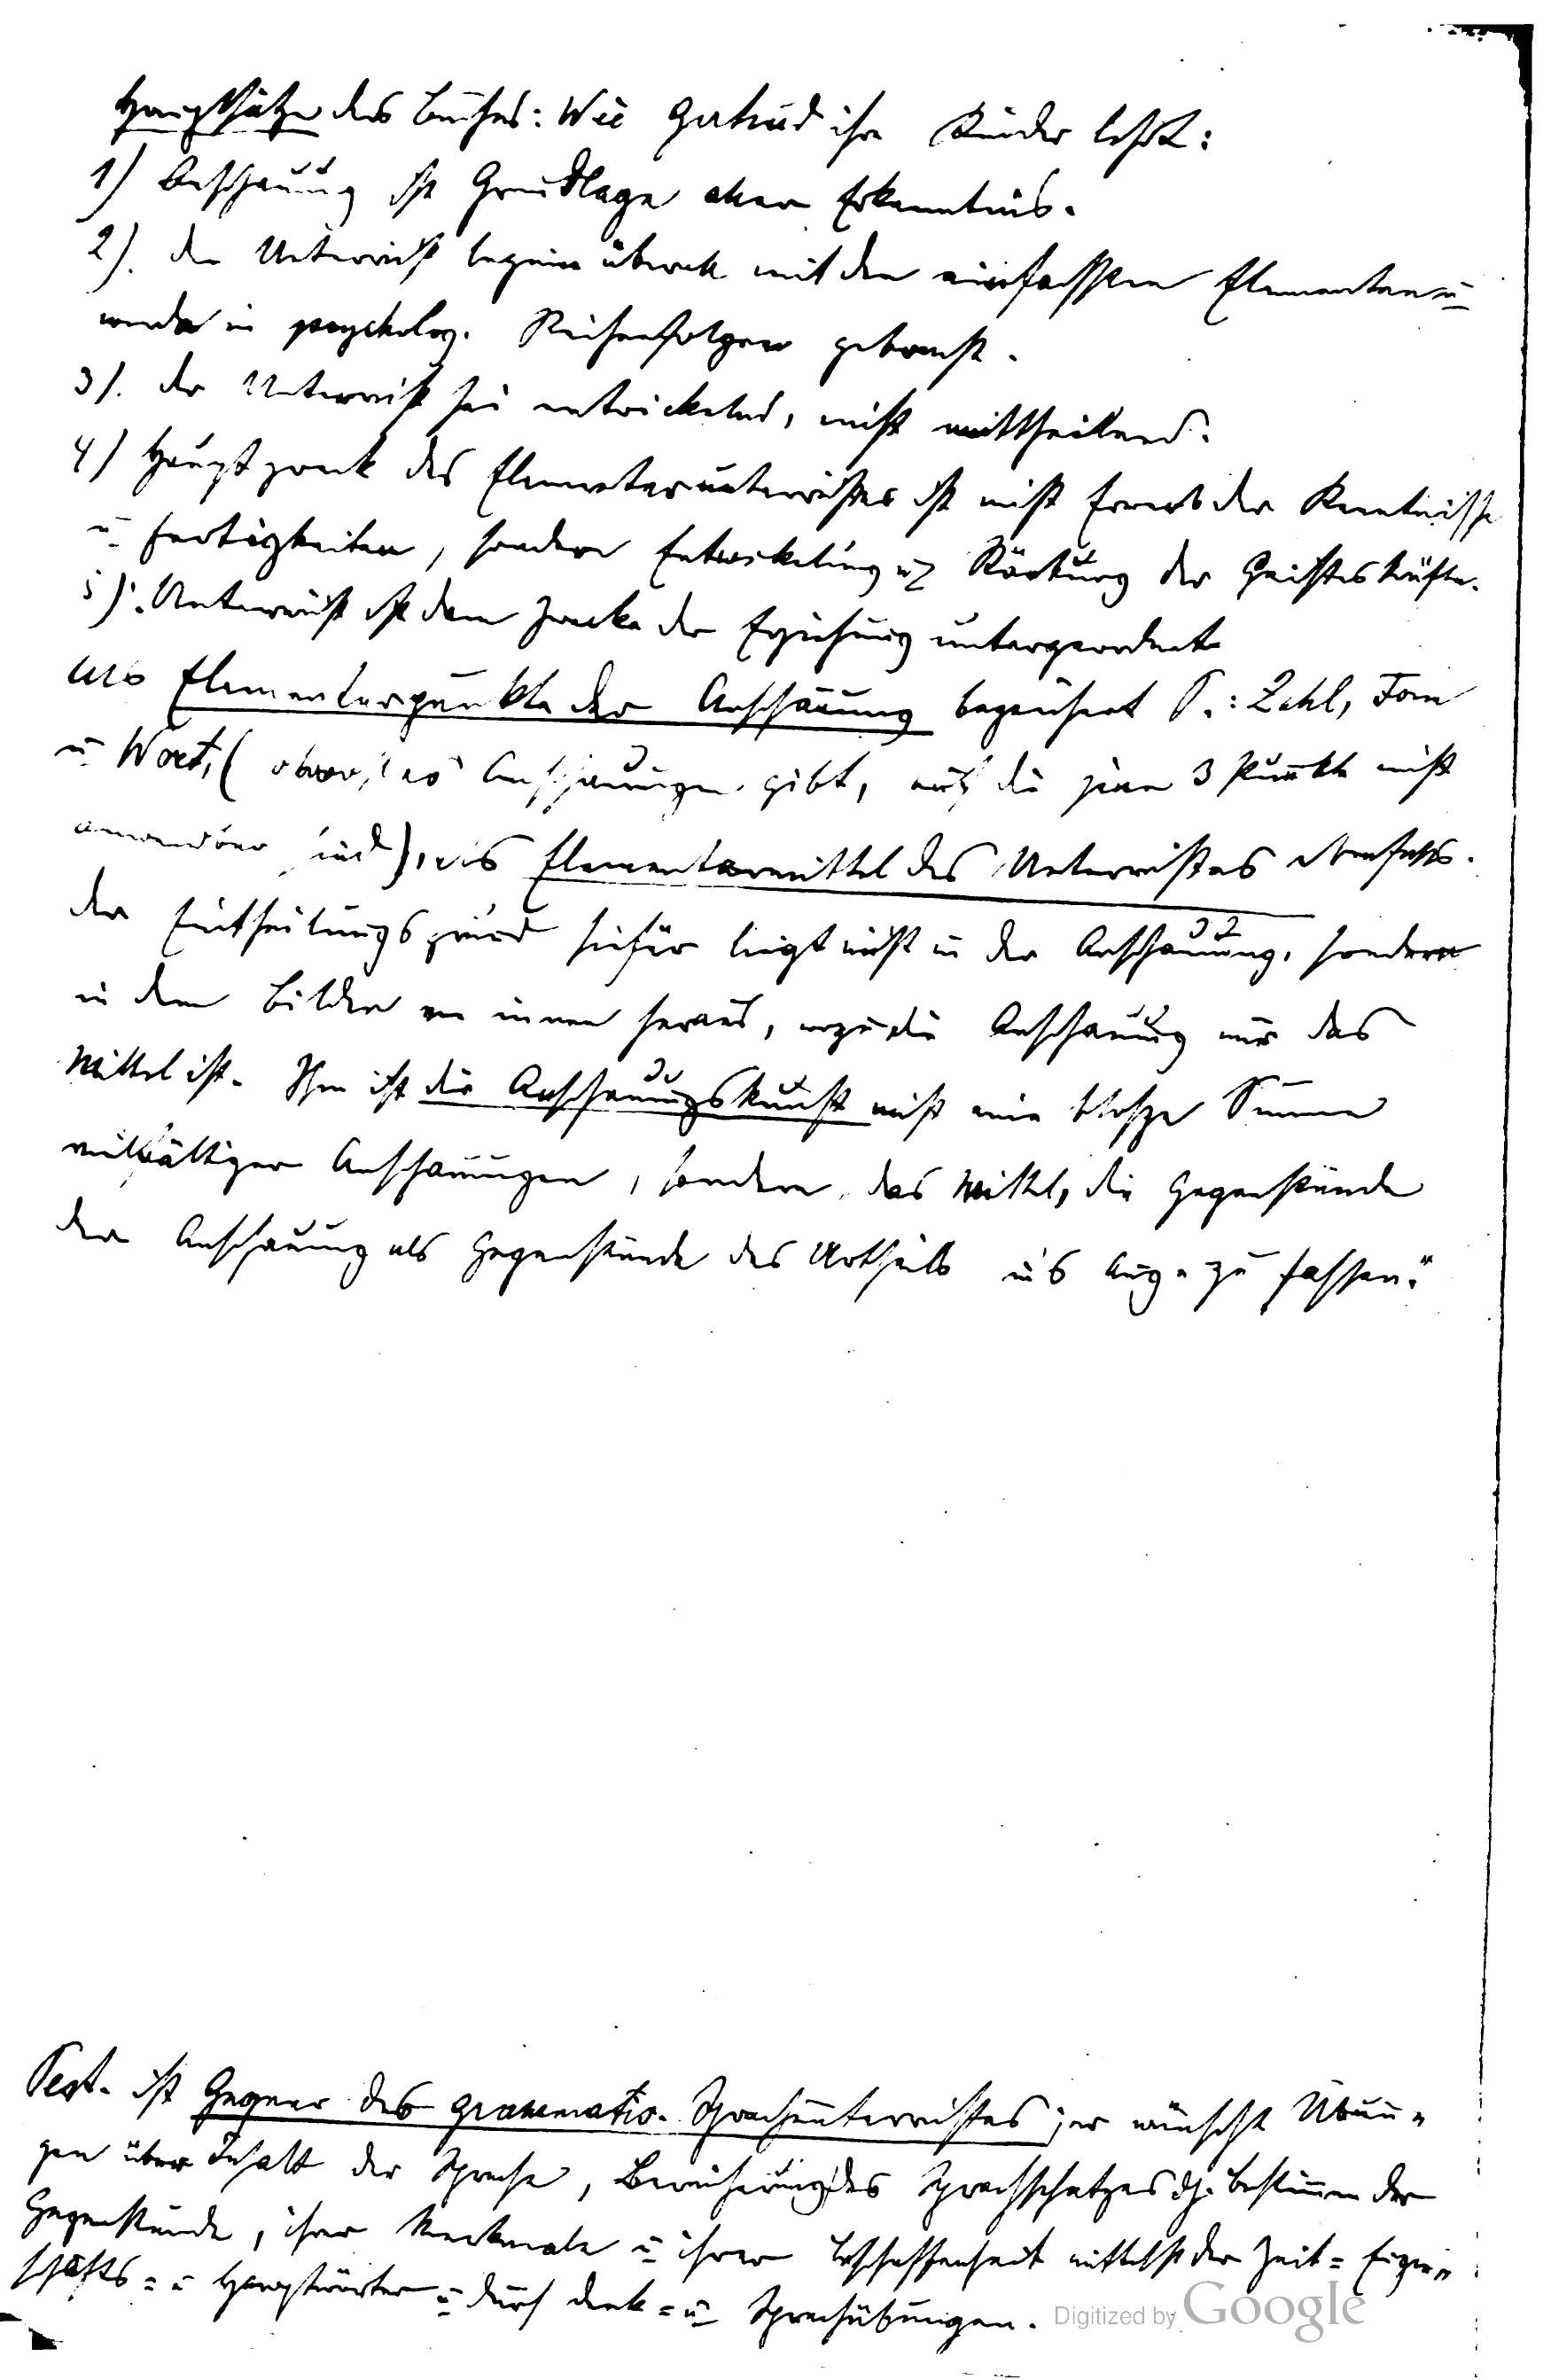 Hauptsätze des Buches: Wie Gertrud ihre Kinder lehrt:
1) Anschauung ist Grundlage aller Erkenntnis.
2). der Unterricht beginne überall mit den einfachsten Elementen u
werde in psycholog. Reihenfolgen gebracht.
3). der Unterricht sei entwickelnd, nicht mittheilend.
4) Hauptzweck des Elementarunterrichtes ist nicht Erwerb der Kenntnisse
u Fertigkeiten, sondern Entwickelung u Stärkung der Geisteskräfte.
5). Unterricht ist dem Zwecke der Erziehung untergeordnet
Als Elementarpunkte der Anschauung bezeichnet P.: Zahl, Form
u Wort, ( obwohl es Anschauungen gibt, auf die jene 3 Punkte nicht
anwendbar sind), als Elementarmittel des Unterrichtes ebenfalls.
der Eintheilungsgrund hiefür liegt nicht in der Anschauung, sondern
in dem Bilden von innen heraus, wozu die Anschauung nur das
Mittel ist. Ihm ist die Anschauungskunst nicht eine bloße Summe
vielfältiger Anschauungen, sondern das Mittel, die Gegenstände
der Anschauung als Gegenstände des Urtheils in's Auge zu fassen."
Pest. ist Gegner des grammatis. Sprachunterrichtes; er wünscht Übun=
gen über Inhalt der Sprache, Bereicherung des Sprachschatzes dh. Bestimmen der
Gegenstände, ihrer Merkmale u ihrer Beschaffenheit mittelst der Zeit= Eigen=
schafts= u Hauptwörter u durch Denk= u Sprechübungen.
Digitized by Google